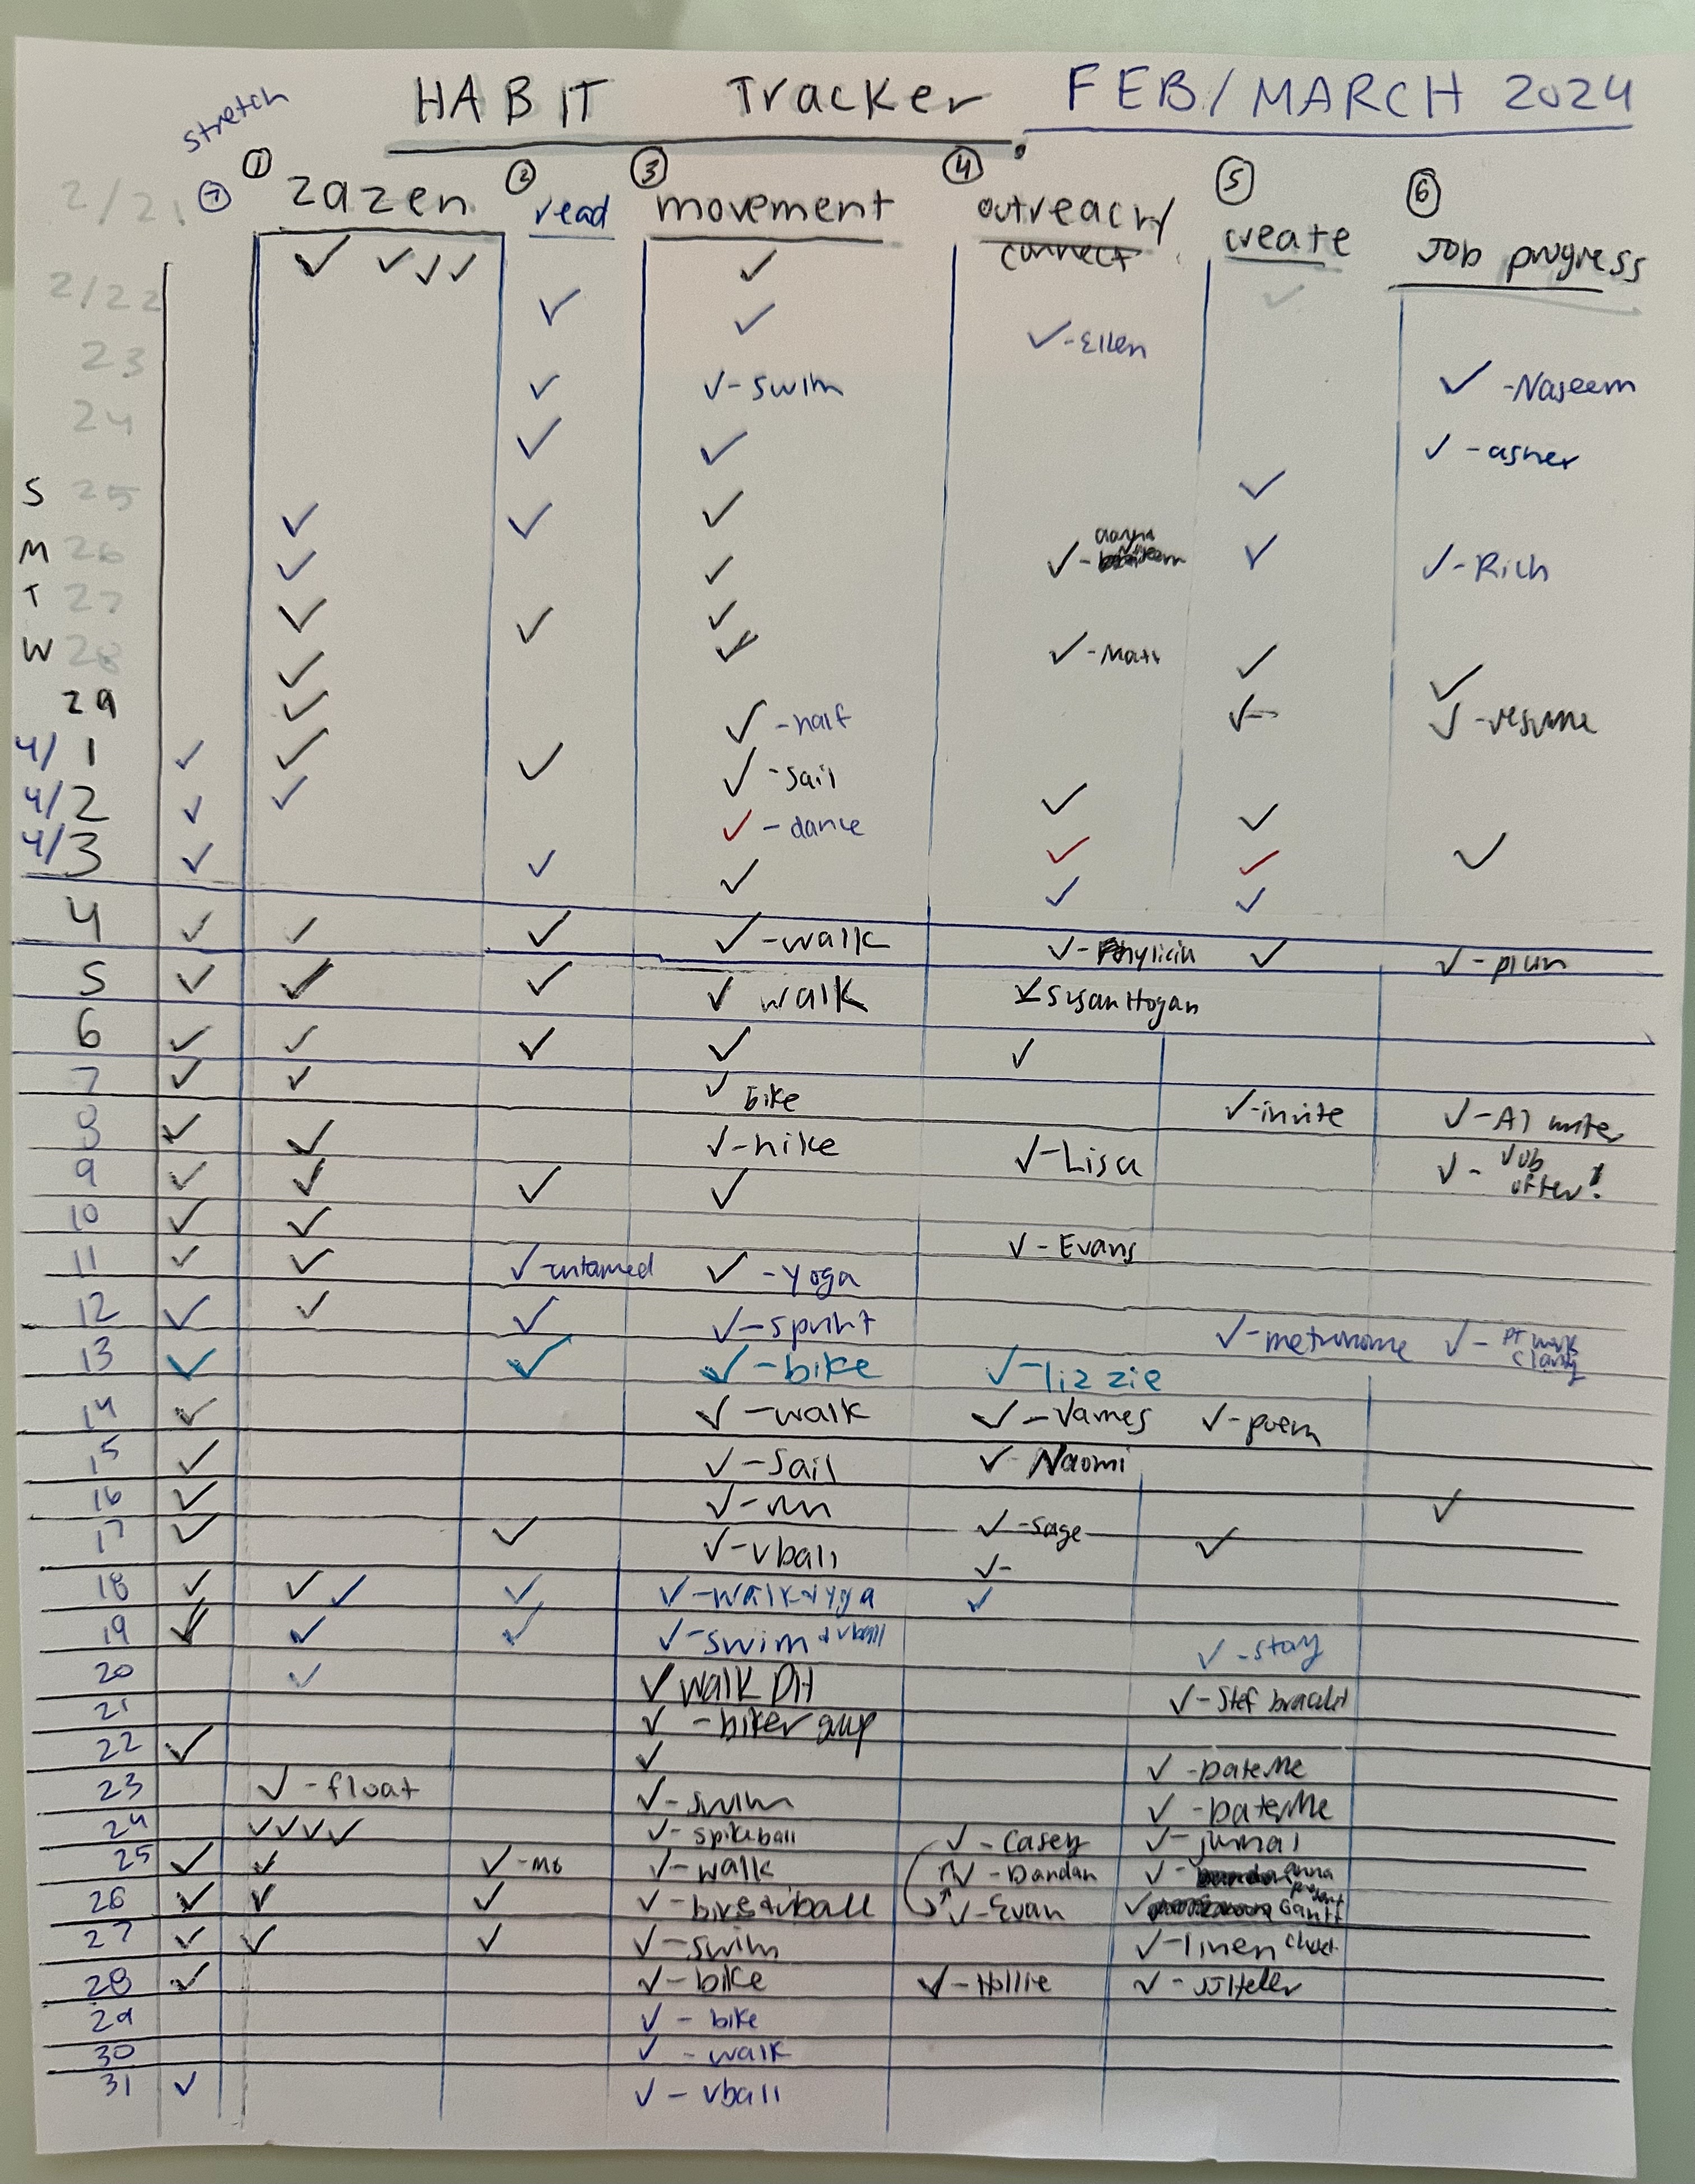 HABIT Tracker. FEB/MARCH 2024
stretch
2/21 ⑦ ① zazen ② read ③ movement ④ outreach/ connect ⑤ create ⑥ Job progress
✓ ✓✓✓ ✓
2/22 ✓ ✓ ✓
23 ✓-Ellen
24 ✓ ✓-swim ✓-Naseem
✓ ✓ ✓-asher
S 25 ✓ ✓ ✓ ✓
M 26 ✓ ✓ ✓- ✓ ✓-Rich
T 27 ✓ ✓ ✓
W 28 ✓ ✓ ✓-Matt ✓ ✓
29 ✓ ✓-half ✓- ✓-resume
4/1 ✓ ✓ ✓ ✓-sail
4/2 ✓ ✓ ✓-dance ✓ ✓
4/3 ✓ ✓ ✓ ✓ ✓ ✓
✓ ✓
4 ✓ ✓ ✓ ✓-walk ✓-Phylicia ✓ ✓-plan
5 ✓ ✓ ✓ ✓ walk ✓ Susan Hogan
6 ✓ ✓ ✓ ✓ ✓
7 ✓ ✓ ✓ bike ✓-invite ✓-AI writer
8 ✓ ✓ ✓-hike ✓-Lisa ✓- Job offer!
9 ✓ ✓ ✓ ✓
10 ✓ ✓ ✓-Evans
11 ✓ ✓ ✓-untamed ✓-yoga
12 ✓ ✓ ✓ ✓-sprint ✓-metronome ✓-PT work clarity
13 ✓ ✓ ✓-bike ✓-lizzie
14 ✓ ✓-walk ✓-James ✓-poem
15 ✓ ✓-Sail ✓-Naomi
16 ✓ ✓-run ✓
17 ✓ ✓ ✓-vball ✓-sage ✓
✓-
18 ✓ ✓✓ ✓ ✓-walk+yga ✓
19 ✓ ✓ ✓ ✓-swim+vball ✓-stay
20 ✓ ✓ walk DH ✓-Stef bracelet
21 ✓-biker
22 ✓ ✓ ✓-DateMe
23 ✓-float ✓-swim ✓-DateMe
24 ✓✓✓✓ ✓-spikeball ✓-Casey ✓-jurnal
25 ✓ ✓ ✓-M6 ✓-walk ✓-Dandan ✓-anna present
26 ✓ ✓ ✓ ✓-bike+vball ✓-Evan ✓ Gantt
27 ✓ ✓ ✓ ✓-swim ✓-linen
28 ✓ ✓-bike ✓-Hollie ✓-JJHeller
29 ✓-bike
30 ✓-walk
31 ✓ ✓-vball